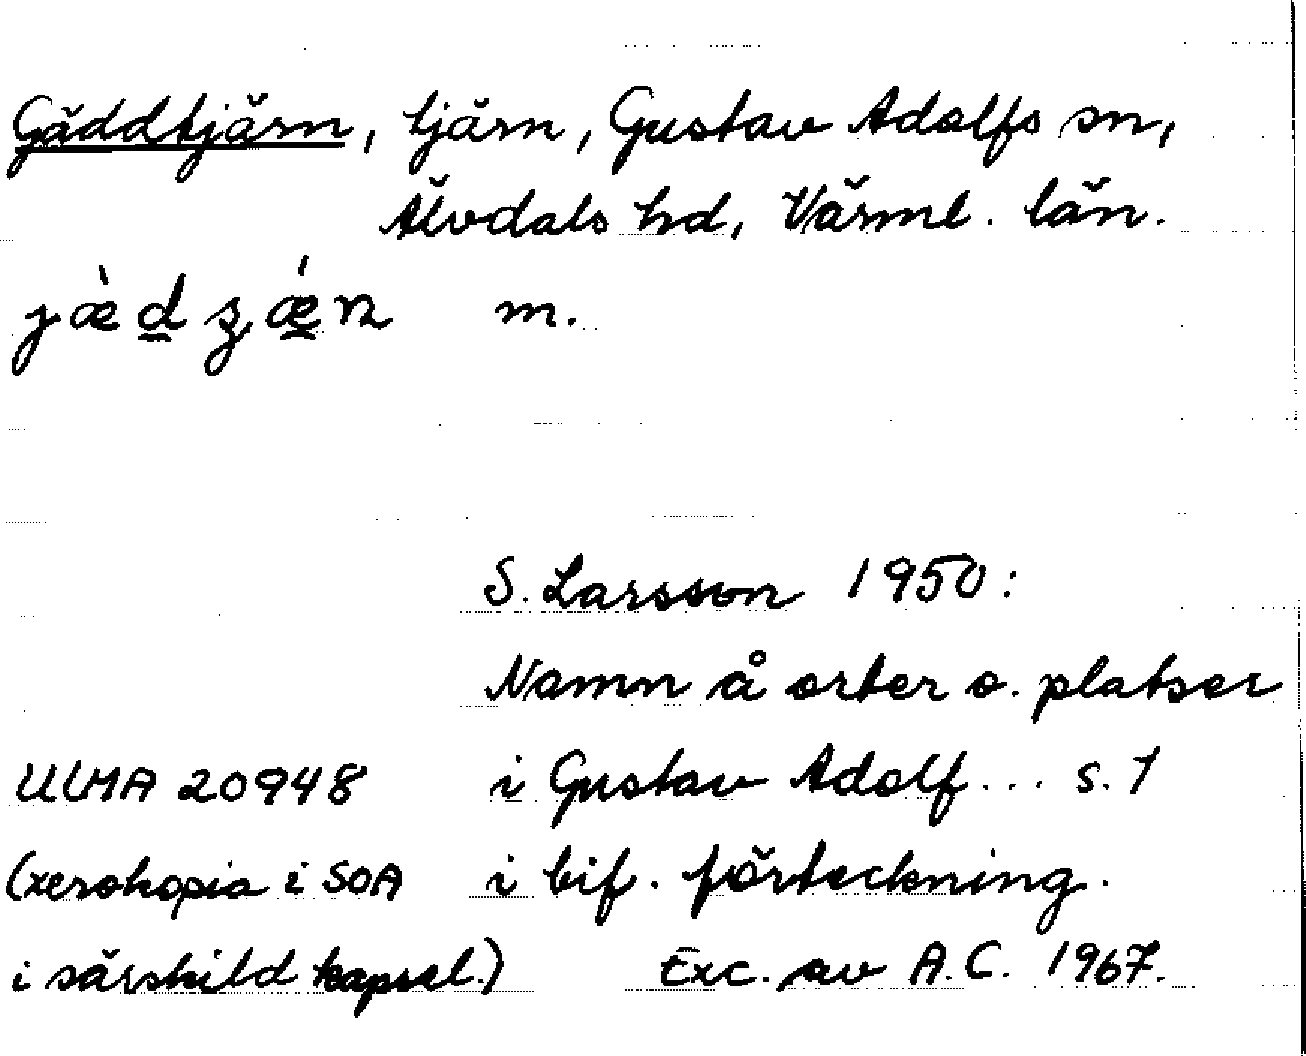 Gäddtjärn, tjärn, Gustav Adolfs sn,
Älvdals hd, Värml. län.
m.
S. Larsson 1950:
Namn å orter o. platser
ULMA 20948 i Gustav Adolf... s. 1
(xerokopia i SOA i bif. förteckning.
i särskild kapsel.) Exc. av A.C. 1967.